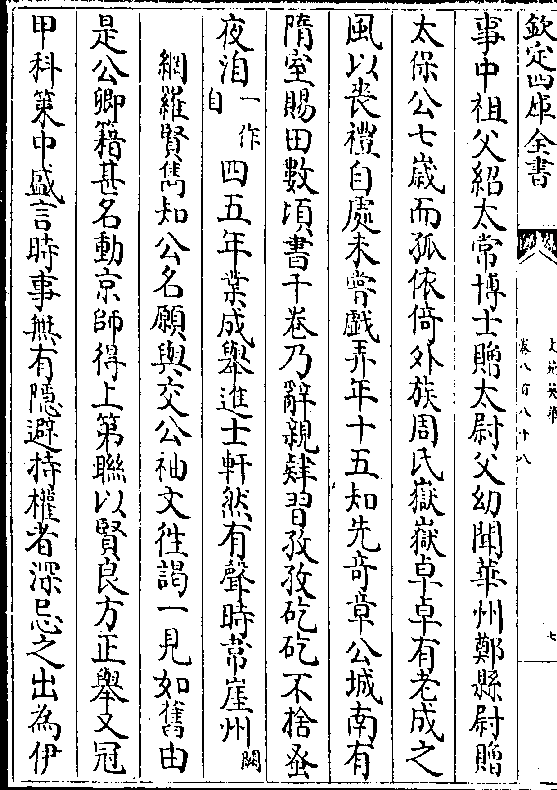 欽定四庫全書
文苑英華
卷八百八十八
七
事中祖父紹太常博士贈太尉父幼聞華州鄭縣尉贈
太保公七歳而孤依倚外族周氏嶽嶽卓卓有老成之
風以喪禮自處未嘗戲弄年十五知先竒章公城南有
隋室賜田數頃書千卷乃辭親肄習孜孜矻矻不捨蚤
夜洎一作自四五年業成舉進士軒然有聲時韋崖州闕
網羅賢雋知公名願與交公袖文徃謁一見如舊由
是公卿籍甚名動京師得上第聯以賢良方正舉又冠
甲科策中盛言時事無有隠避持權者深忌之出為伊